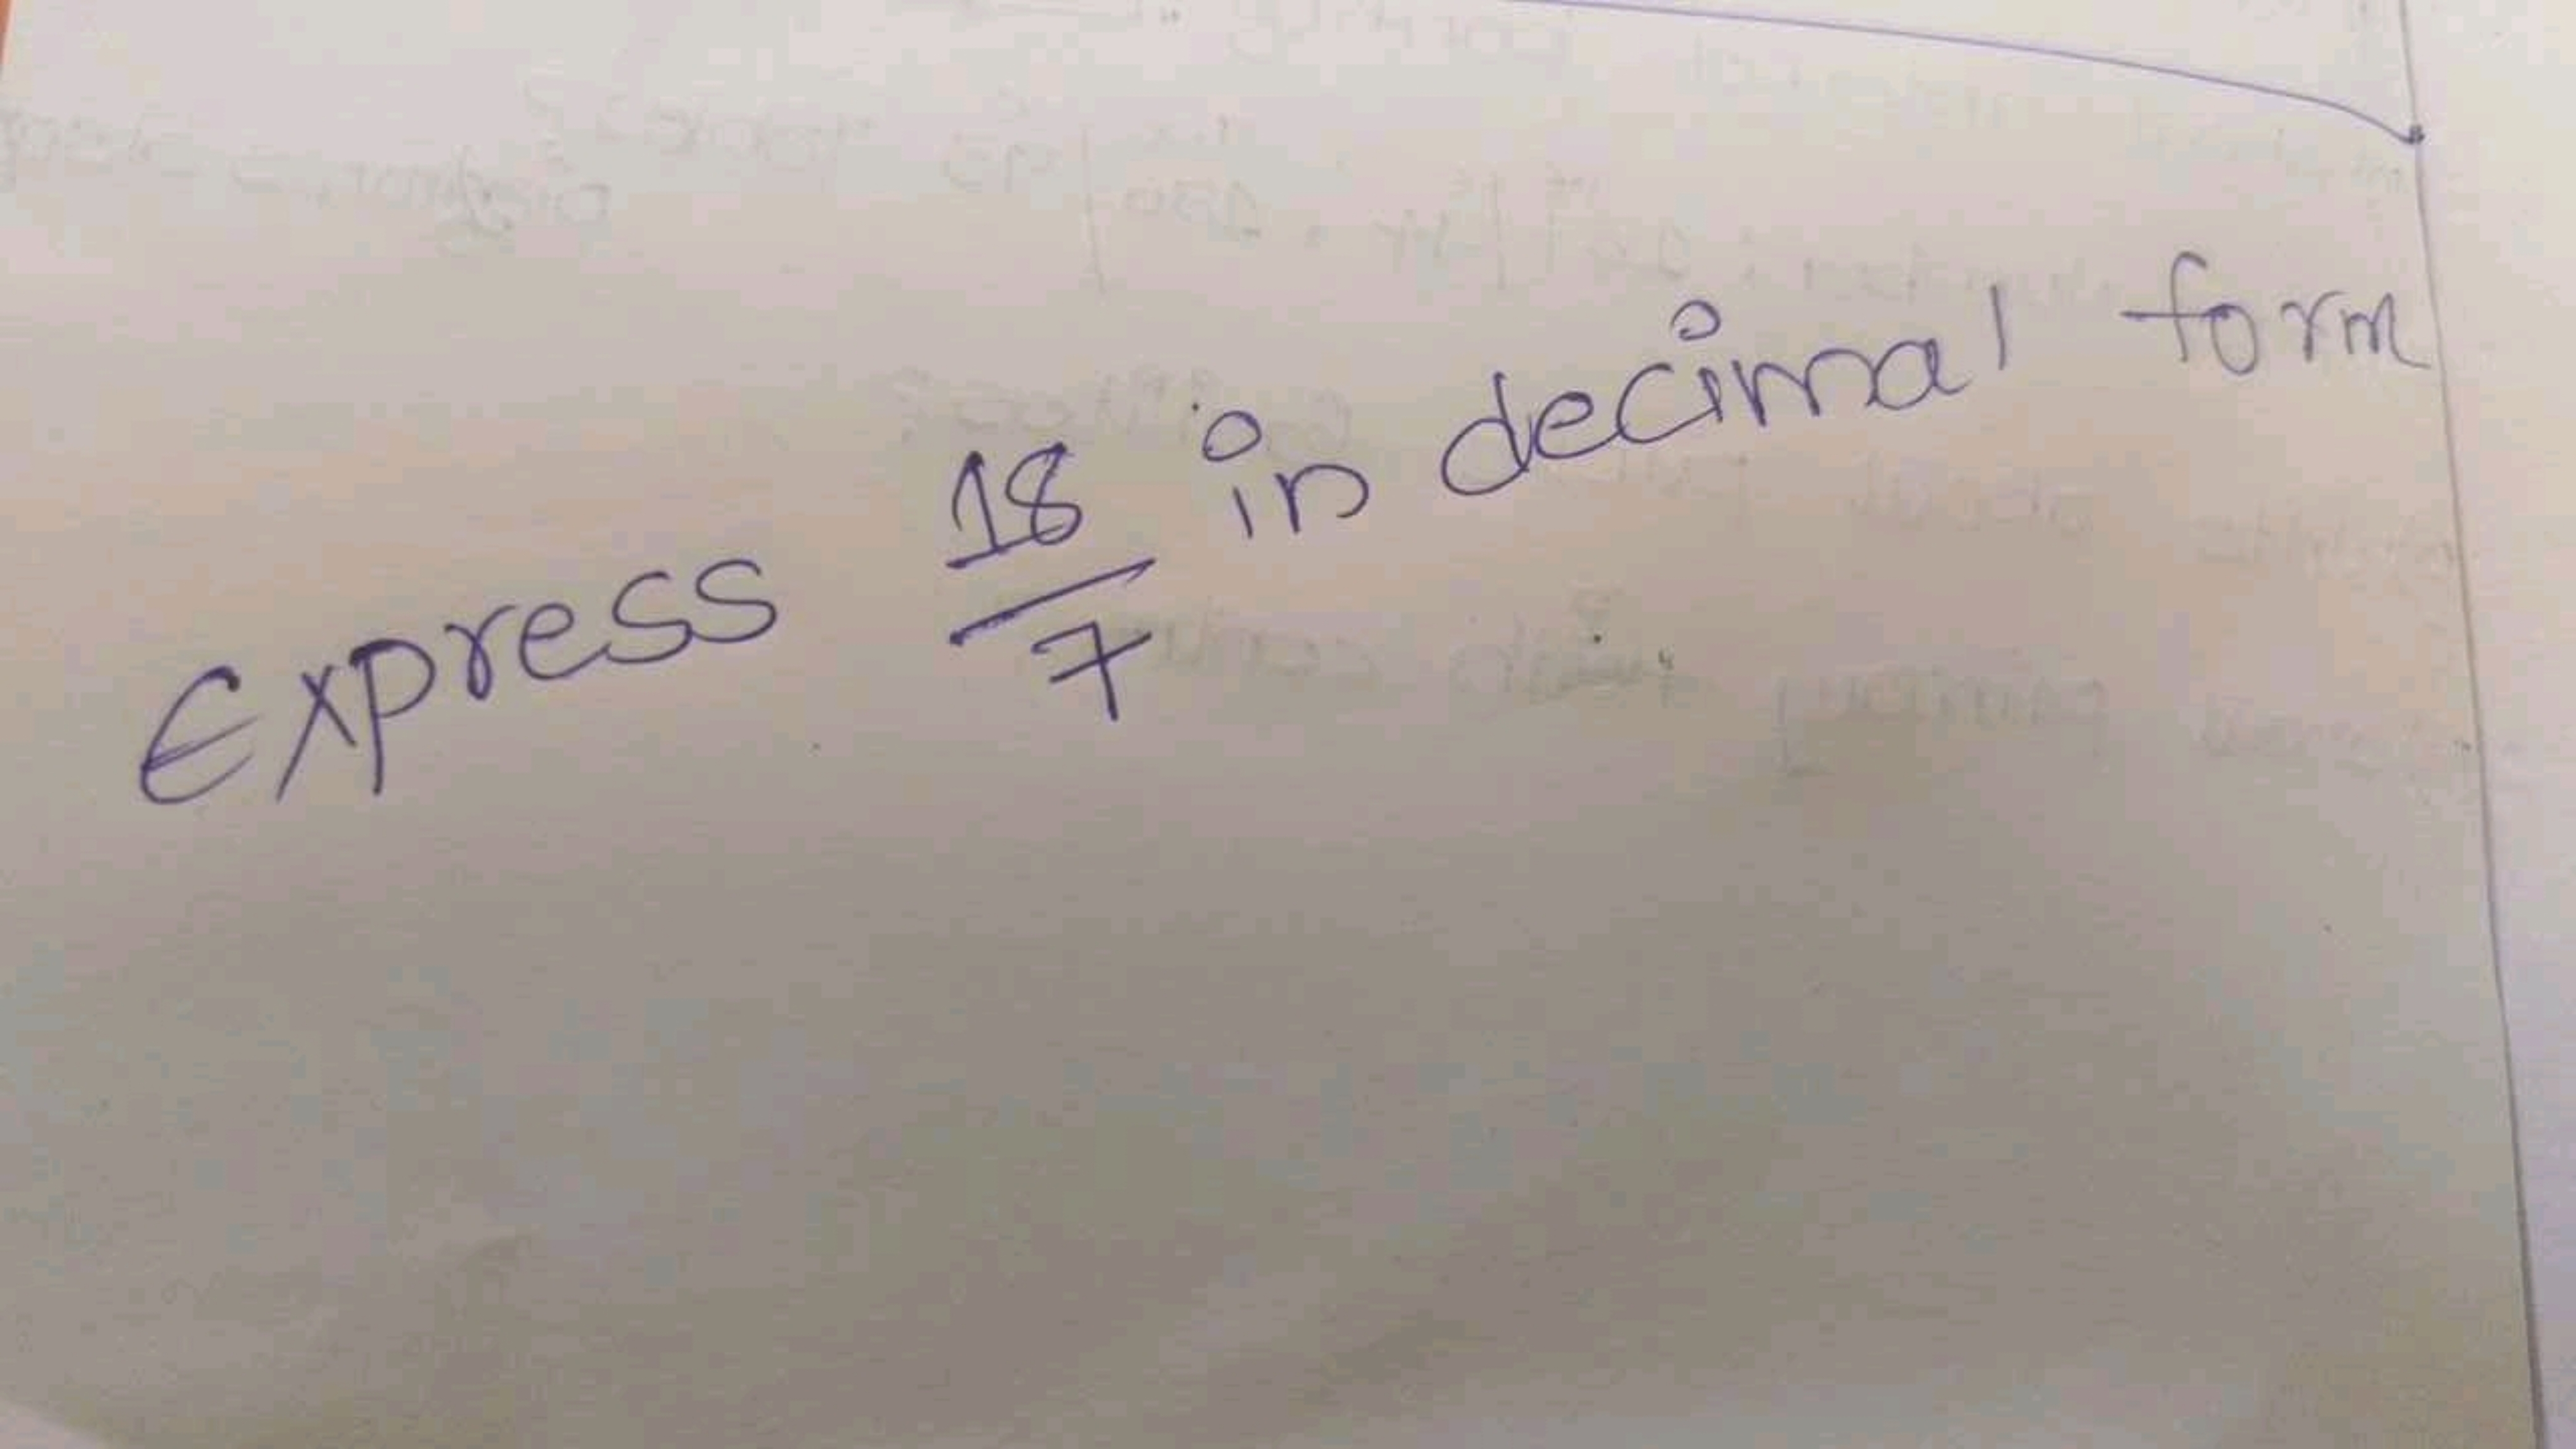 Express 18/7 in decimal form